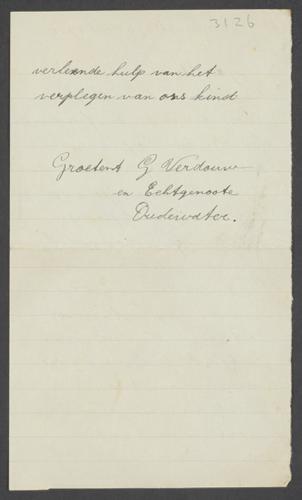 3126
verleende hulp van het
verplegen van ons kind
Groetent G Verdouw
en Echtgenoote
Oudewater.